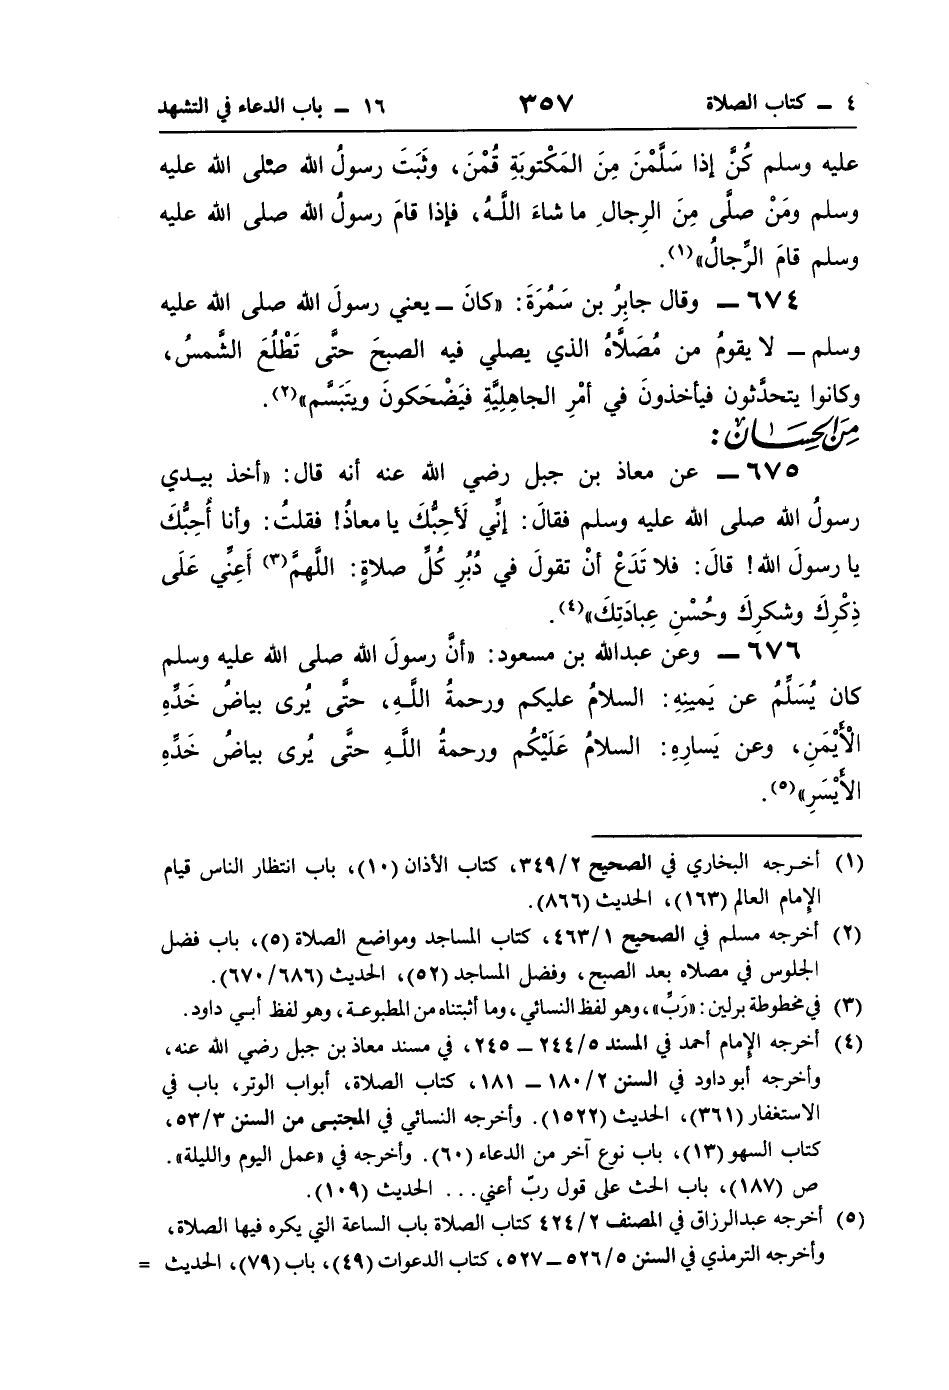 ٤ ــ كتاب الصلاة ٣٥٧ ١٦ ــ باب الدعاء في التشهد
عليه وسلم كُنَّ إذا سَلَّمْنَ مِنَ المَكْتوبَةِ قُمْنَ، وثَبَتَ رسولُ الله صلى الله عليه
وسلم ومَنْ صلَّى مِنَ الرِجالِ ما شاءَ اللَّهُ، فإذا قامَ رسولُ الله صلى الله عليه
وسلم قامَ الرِّجالُ»(١).
٦٧٤ ــ وقال جابِرُ بن سَمُرَةَ: «كانَ ــ يعني رسولَ الله صلى الله عليه
وسلم ــ لا يقومُ من مُصَلَّاهُ الذي يصلي فيه الصبحَ حتَّى تَطْلُعَ الشَّمسُ،
وكانوا يتحدَّثون فيأخذونَ في أمْرِ الجاهليَّةِ فيَضْحَكونَ ويتَبَسَّم»(٢).
مِنَ الحِسَان:
٦٧٥ ــ عن معاذ بن جبل رضي الله عنه أنه قال: «أخذ بيدي
رسولُ الله صلى الله عليه وسلم فقالَ: إنِّي لَأحِبُّكَ يا معاذُ! فقلتُ: وأنا أُحِبُّكَ
يا رسولَ الله! قالَ: فلا تَدَعْ أنْ تقولَ في دُبُرِ كُلِّ صلاةٍ: اللَّهمَّ(٣) أَعِنِّي عَلَى
ذِكْرِكَ وشكرِكَ وحُسْنِ عِبادَتِكَ»(٤).
٦٧٦ ــ وعن عبدالله بن مسعود: «أنَّ رسولَ الله صلى الله عليه وسلم
كان يُسَلِّمُ عن يَمينِهِ: السلامُ عليكم ورحمةُ اللَّهِ، حتَّى يُرى بياضُ خَدِّهِ
الْأيْمَنِ، وعن يَسارِهِ: السلامُ عَلَيْكُم ورحمةُ اللَّهِ حتَّى يُرى بياضُ خَدِّهِ
الأَيْسَرِ»(٥).
(١) أخرجه البخاري في الصحيح ٣٤٩/٢، كتاب الأذان (١٠)، باب انتظار الناس قيام
الإمام العالم (١٦٣)، الحديث (٨٦٦).
(٢) أخرجه مسلم في الصحيح ٤٦٣/١، كتاب المساجد ومواضع الصلاة (٥)، باب فضل
الجلوس في مصلاه بعد الصبح، وفضل المساجد (٥٢)، الحديث (٦٧٠/٦٨٦).
(٣) في مخطوطة برلين: «رَبِّ»، وهو لفظ النسائي، وما أثبتناه من المطبوعة، وهو لفظ أبي داود.
(٤) أخرجه الإمام أحمد في المسند ٢٤٤/٥ ــ ٢٤٥، في مسند معاذ بن جبل رضي الله عنه،
وأخرجه أبو داود في السنن ١٨٠/٢ ــ ١٨١، كتاب الصلاة، أبواب الوتر، باب في
الاستغفار (٣٦١)، الحديث (١٥٢٢). وأخرجه النسائي في المجتبى من السنن ٥٣/٣،
كتاب السهو (١٣)، باب نوع آخر من الدعاء (٦٠). وأخرجه في «عمل اليوم والليلة».
ص (١٨٧)، باب الحث على قول ربّ أعني... الحديث (١٠٩).
(٥) أخرجه عبدالرزاق في المصنف ٤٢٤/٢ كتاب الصلاة باب الساعة التي يكره فيها الصلاة،
وأخرجه الترمذي في السنن ٥٢٦/٥ ــ ٥٢٧، كتاب الدعوات (٤٩)، باب (٧٩)، الحديث =